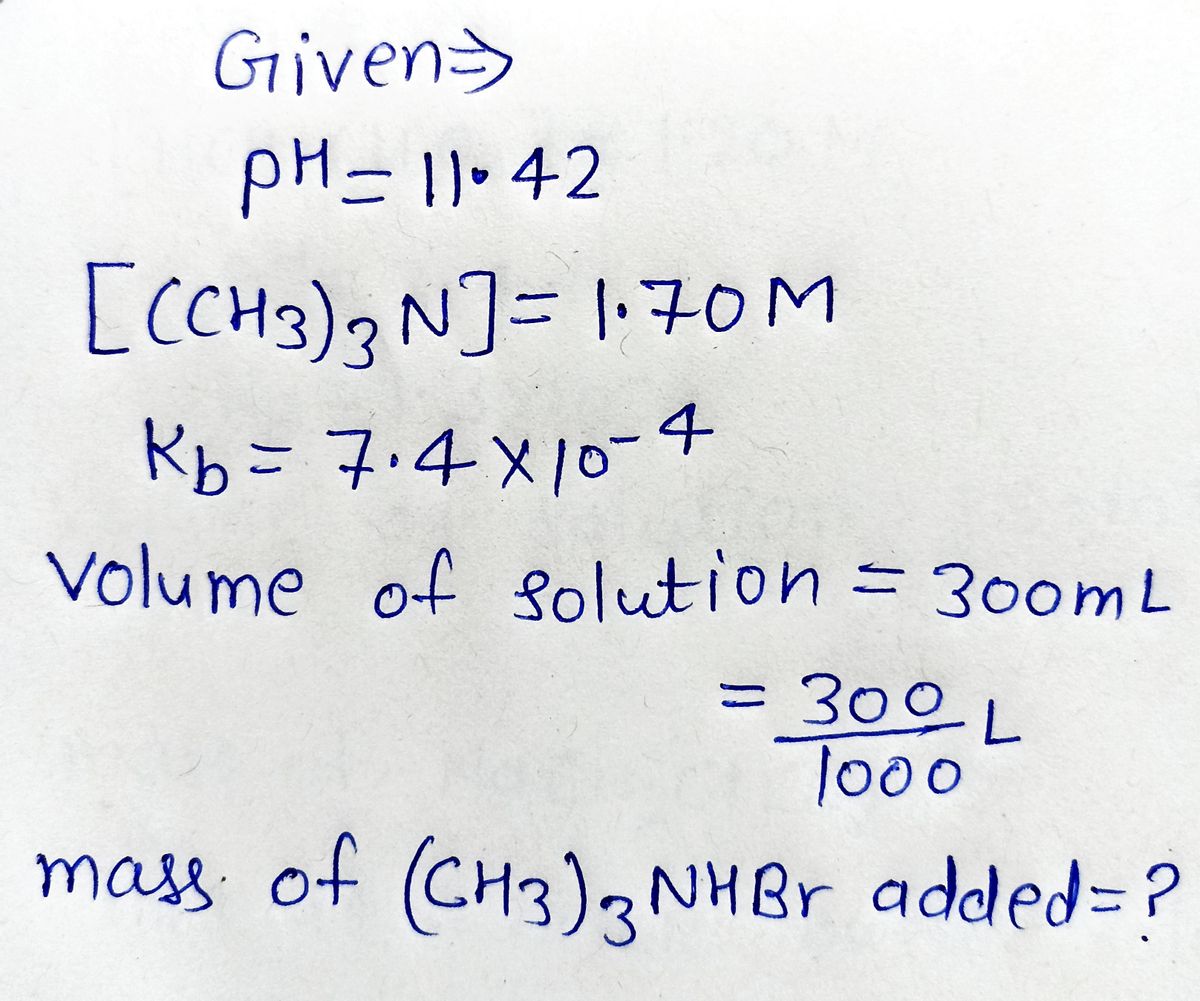 Given⇒
pH = 11.42
[(CH3)3 N] = 1.70 M
Kb = 7.4 x 10-4
Volume of solution = 300mL
= 300/1000 L
mass of (CH3)3 NHBr added=?